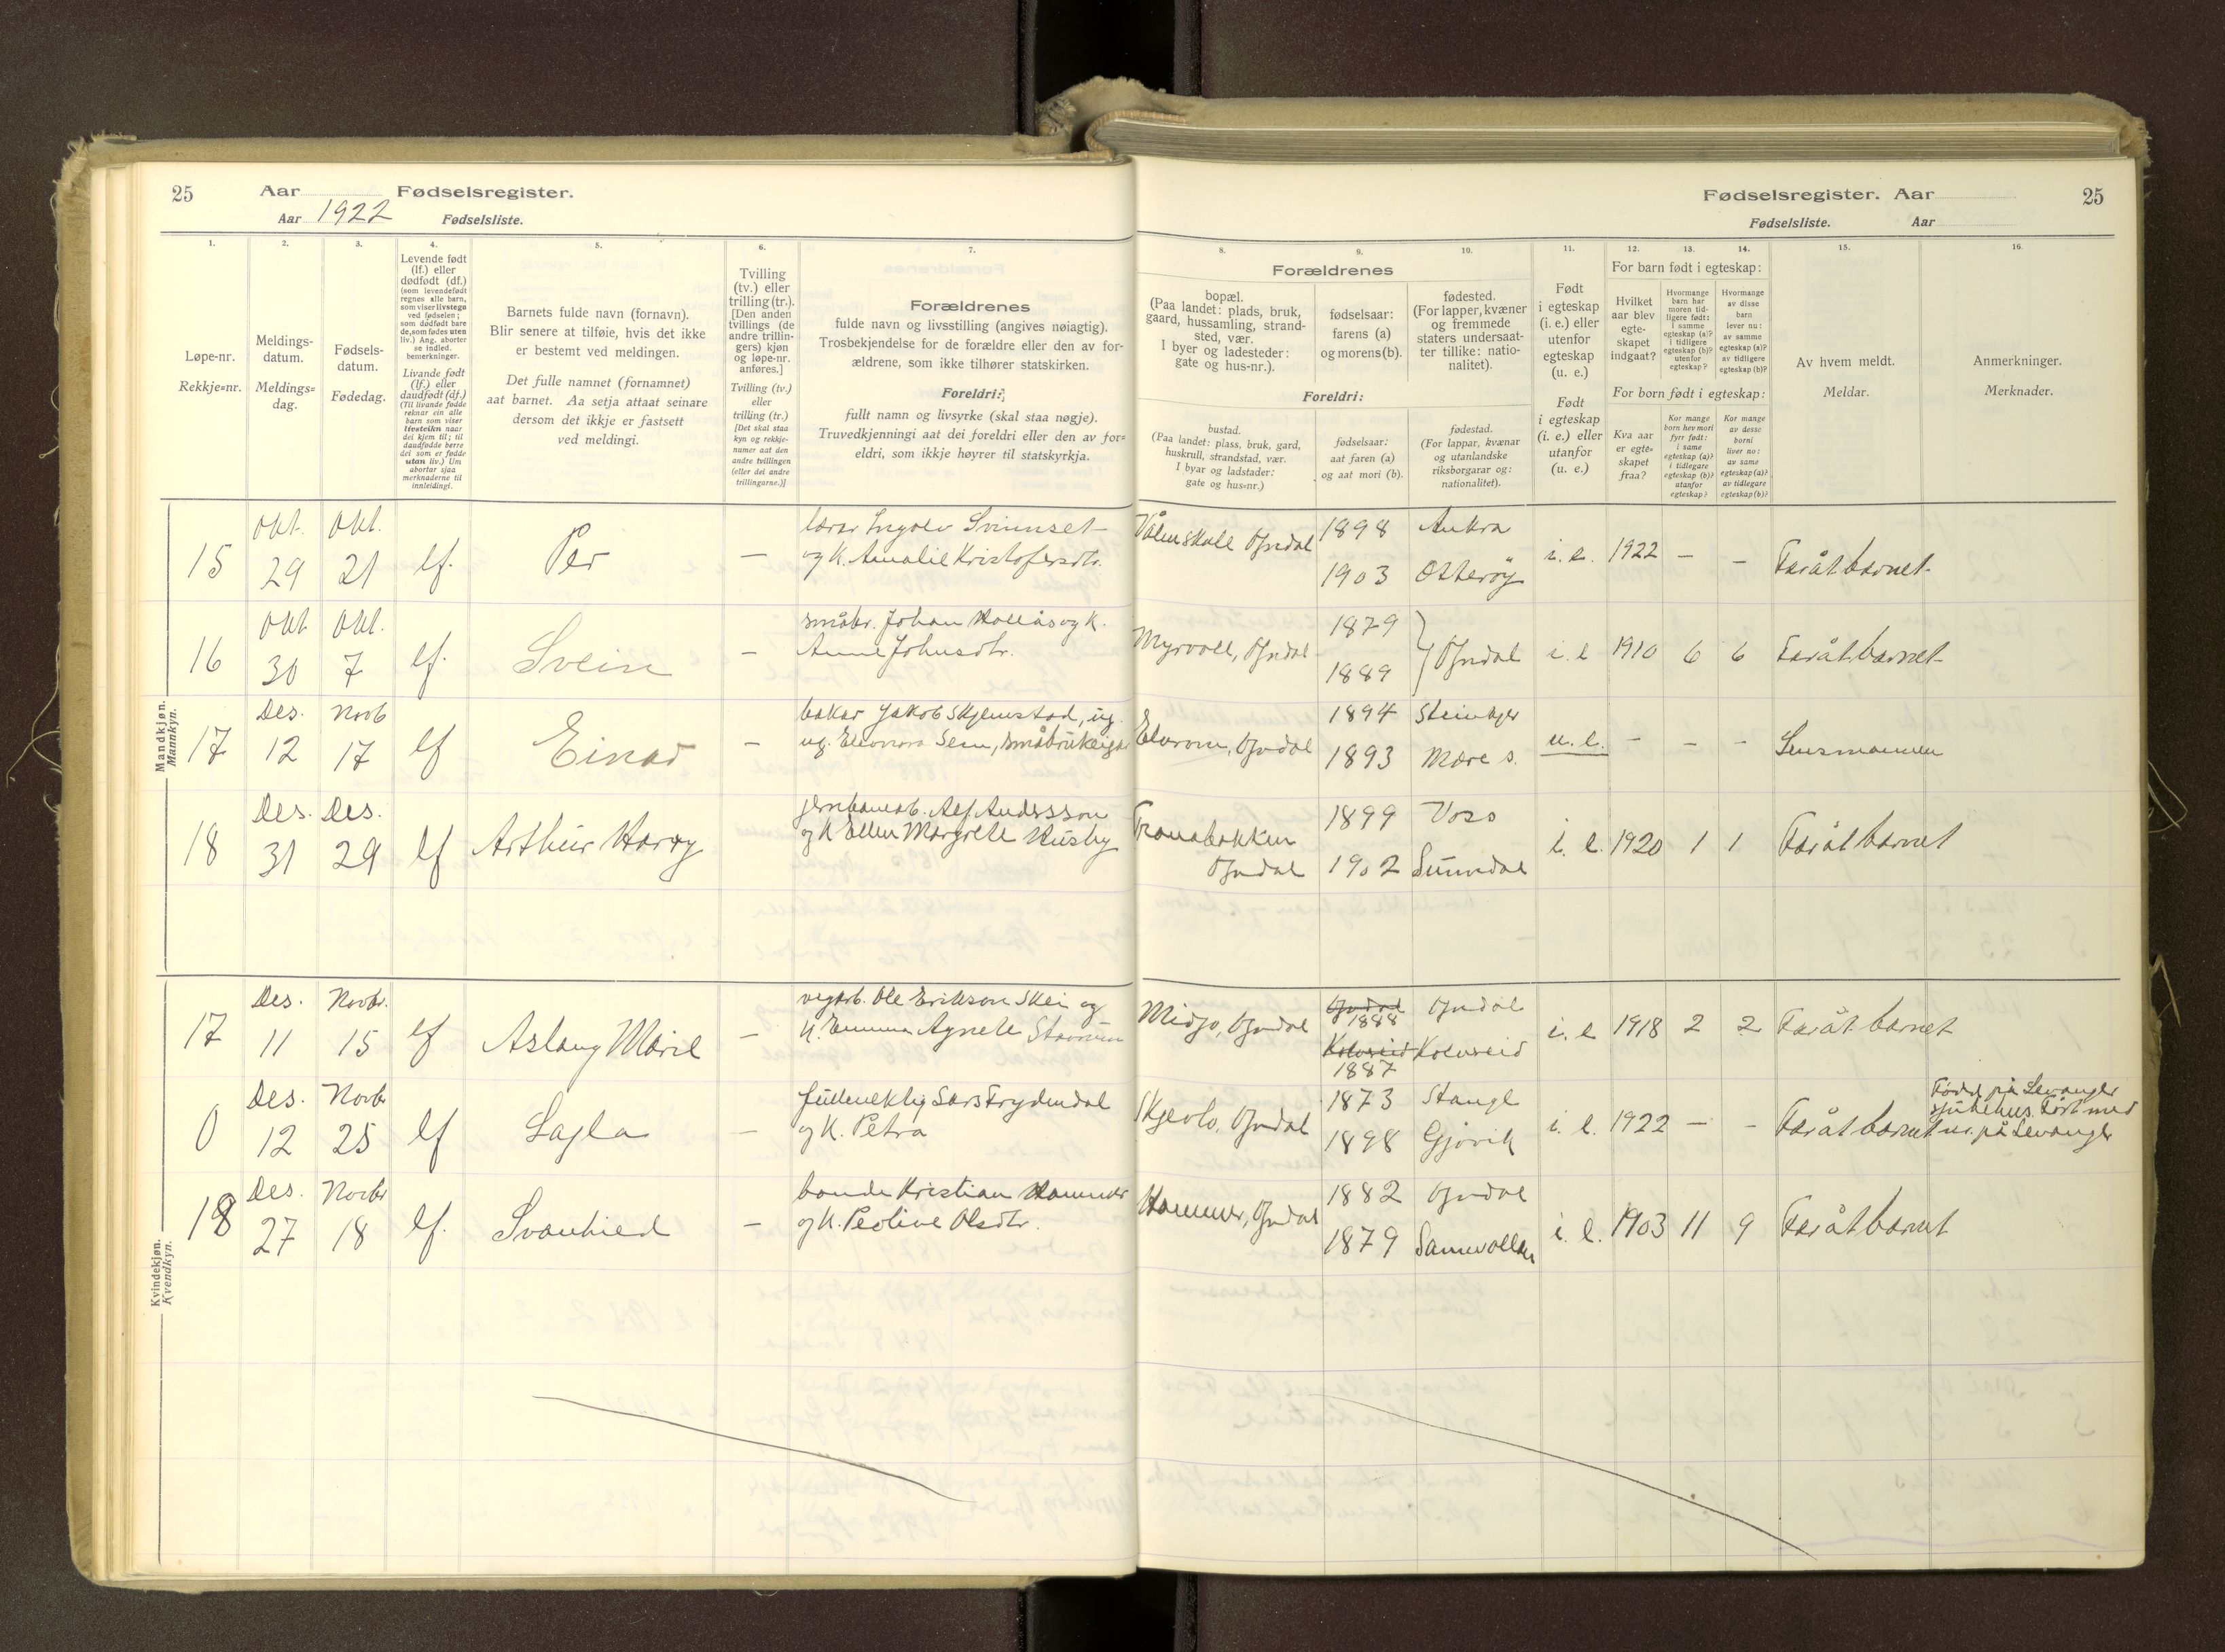 25
Aar
Fødselsregister.
Aar 1922
Fødselsliste.
Fødselsregister. Aar
25
Fødselsliste.
Aar
1.
2.
3.
4.
5.
6.
7.
8.
9.
10.
11.
12.
13.
14.
15.
16.
Løpe-nr.
Rekkje=nr.
Meldings-
datum.
Meldings=
dag.
Fødsels-
datum.
Fødedag.
Levende født
(lf.) eller
dødfødt (df.)
(som levendefødt
regnes alle barn,
som viser livstegn
ved fødselen;
som dødfødt bare
de, som fødes uten
liv.) Ang. aborter
se indled.
bemerkninger.
Livande født
(lf.) eller
daudfødt (df.)
(Til livande fødde
reknar ein alle
barn som viser
livsteikn naar
dei kjem til; til
daudfødde berre
dei som er fødde
utan liv.) Um
abortar sjaa
merknaderne til
innleidingi.
Barnets fulde navn (fornavn).
Blir senere at tilføie, hvis det ikke
er bestemt ved meldingen.
Det fulle namnet (fornamnet)
aat barnet. Aa setja attaat seinare
dersom det ikkje er fastsett
ved meldingi.
Tvilling
(tv.) eller
trilling (tr.).
[Den anden
tvillings (de
andre trillin-
gers) kjøn
og løpe-nr.
anføres.]
Tvilling (tv.)
eller
trilling (tr.)
[Det skal staa
kyn og rekkje-
numer aat den
andre tvillingen
(eller dei andre
trillingarne.)]
Forældrenes
fulde navn og livsstilling (angives nøiagtig).
Trosbekjendelse for de forældre eller den av for-
ældrene, som ikke tilhører statskirken.
Foreldri:
fullt namn og livsyrke (skal staa nøgje).
Truvedkjenningi aat dei foreldri eller den av for=
eldri, som ikkje høyrer til statskyrkja.
Forældrenes
bopæl.
(Paa landet: plads, bruk,
gaard, hussamling, strand-
sted, vær.
I byer og ladesteder:
gate og hus-nr.).
fødselsaar:
farens (a)
og morens (b).
fødested.
(For lapper, kvæner
og fremmede
staters undersaat-
ter tillike: natio-
nalitet).
Foreldri:
bustad.
(Paa landet: plass, bruk, gard,
huskrull, strandstad, vær.
I byar og ladstader:
gate og hus=nr.)
fødselsaar:
aat faren (a)
og aat mori (b).
fødestad.
(For lappar, kvænar
og utanlandske
riksborgarar og:
nationalitet).
Født
i egteskap
(i. e.) eller
utenfor
egteskap
(u. e.)
Født
i egteskap
(i. e.) eller
utanfor
(u. e.)
For barn født i egteskap:
Hvilket
aar blev
egte-
skapet
indgaat?
Hvormange
barn har
moren tid-
ligere født:
i samme
egteskap (a)?
i tidligere
egteskap (b)?
utenfor
egteskap?
Hvormange
av disse
barn
lever nu:
av samme
egteskap (a)?
av tidligere
egteskap (b)?
For born født i egteskap:
Kva aar
er egte=
skapet
fraa?
Kor mange
born hev mori
fyrr født:
i same
egteskap (a)?
i tidlegare
egteskap (b)?
utanfor
egteskap?
Kor mange
av desse
borni
liver no:
av same
egteskap (a)?
av tidlegare
egteskap (b)?
Av hvem meldt.
Meldar.
Anmerkninger.
Merknader.
Mandkjøn.
Mannkyn.
15 Okt. 29 Okt. 21 lf. Per — lærar Ingolv Svinnset
og k. Amalie Kristofersdtr. Ogndal 1898 Aukra
1903 Otterøy i. e. 1922 — — Far åt barnet
16 Okt 30 Okt. 7 lf. Svein — småbr. Johan Hollås og k.
Anne Johnsdtr. Myrvoll, Ogndal 1879
1889 Ogndal i. e 1910 6 6 Far åt barnet
17 Des. 12 Novb 17 lf Einar — bakar Jakob Skjemstad, ug.
ug. Eleonora Sem, Ogndal 1894 Steinkjer
1893 Mære s. u. e. — — — Lensmannen
18 Des. 31 Des. 29 lf Arthur Harry jernbanearb. Alf Andersson
og k Ellen Margrete Husby Tranabakken
Ogndal 1899 Voss
1902 Sunndal i. e. 1920 1 1 Far åt barnet
Kvindekjøn.
Kvendkyn.
17 Des. 11 Novbr. 15 lf Aslaug Marie — vegarb. Ole Erikson Skei og
k. Emma Agnete Midjo, Ogndal Ogndal 1888 Ogndal
Kolvreid 1887 Kolvreid i. e 1918 2 2 Far åt barnet
0 Des. 12 Novbr 25 lf Lajla — fullmektig Lars Frydendal
og k. Petra Ogndal 1873 Stange
1898 Gjøvik i. e. 1922 — — Far åt barnet Född på Levanger
sjukehus. Fört med
nr. på Levanger
18 Des. 27 Novbr 18 lf. Svanhild — bonde Kristian Hammer
og k. Peoline Olsdtr. Hammer, Ogndal 1882 Ogndal
1879 i. e. 1903 11 9 Far åt barnet